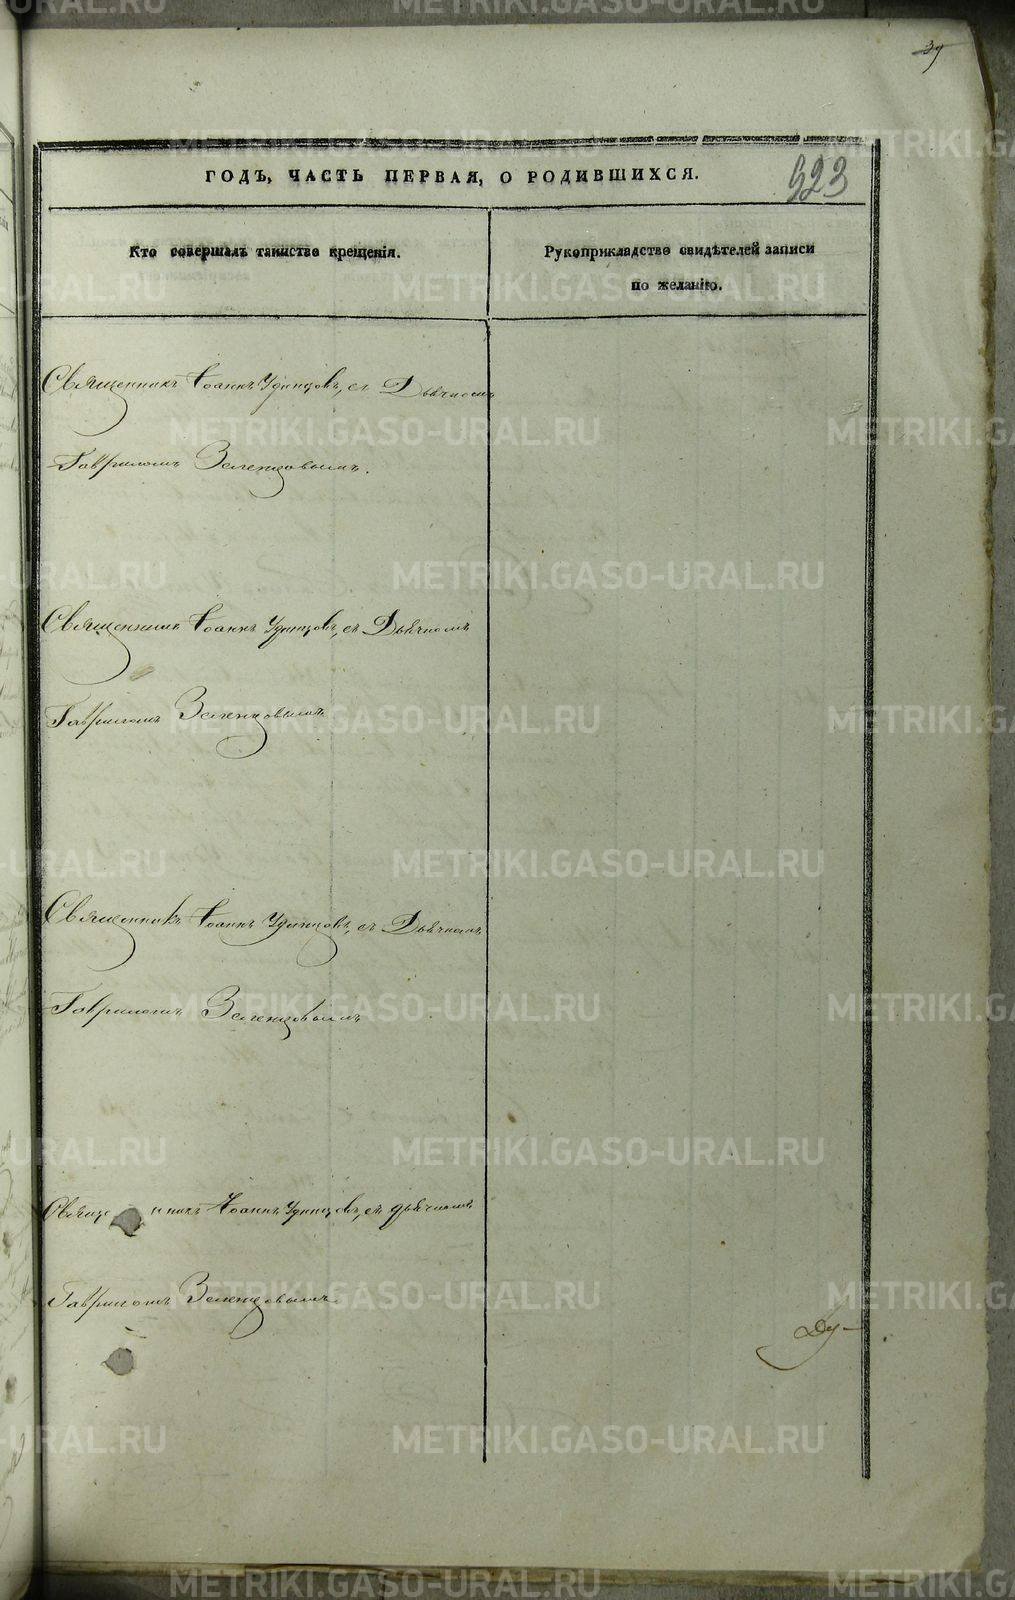 39
ГОДЪ, ЧАСТЬ ПЕРВАЯ, О РОДИВШИХСЯ.
523
Кто совершалъ таинство крещенія.
Рукоприкладство свидѣтелей записи
по желанію.
Священникъ Іоаннъ Удинцовъ, съ Дьячкомъ
Гавриломъ Зеленцовымъ.
Священникъ Іоаннъ Удинцовъ, съ Дьячкомъ
Гавриломъ Зеленцовымъ
Священникъ Іоаннъ Удинцовъ, съ Дьячкомъ
Гавриломъ Зеленцовымъ
Священникъ Іоаннъ Удинцовъ, съ дьячкомъ
Гавриломъ Зеленцовымъ.
METRIKI.GASO-URAL.RU